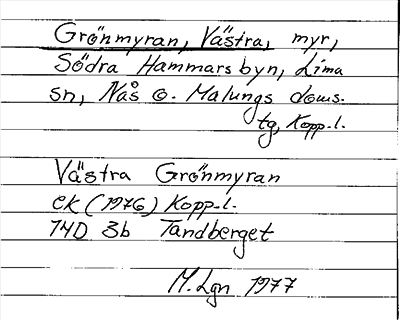 Grönmyran, Västra, myr,
Södra Hammarsbyn, Lima
sn, Nås o. Malungs doms.
tg, Kopp.l.
Västra Grönmyran
ek (1976) Kopp.l.
14D 3b Tandberget
M. Lgn 1977